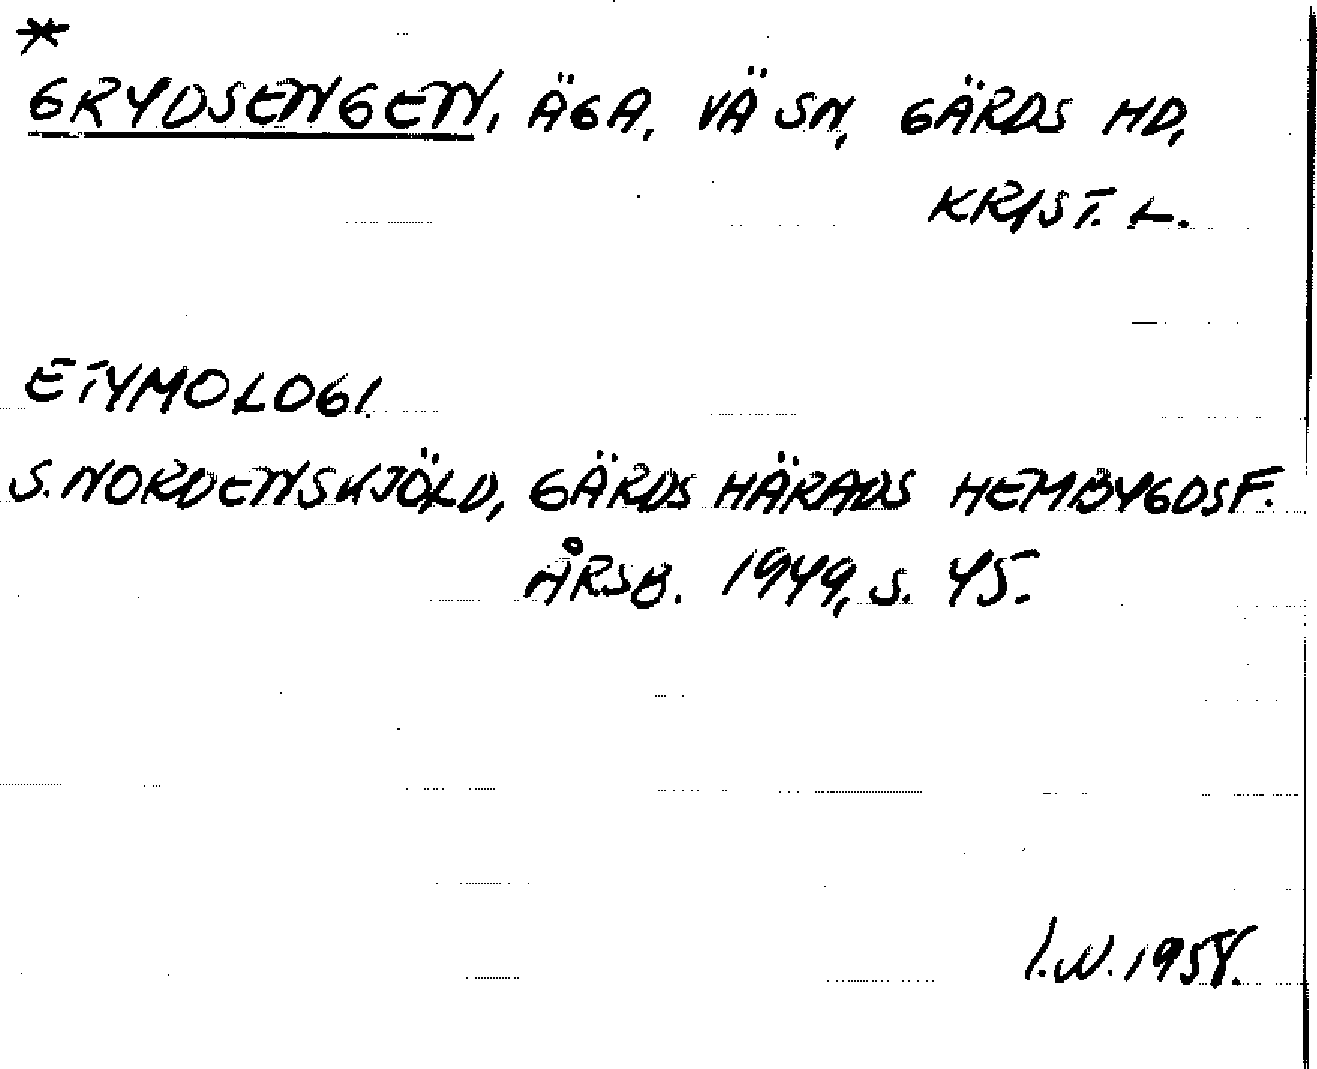 *
GRYDSENGEN, ÄGA, VÄ SN, GÄRDS HD,
KRIST. L.
ETYMOLOGI.
S. NORDENSKJÖLD, GÄRDS HÄRADS HEMBYGDSF.
ÅRSB. 1949, S. 45.
I.N. 1958.